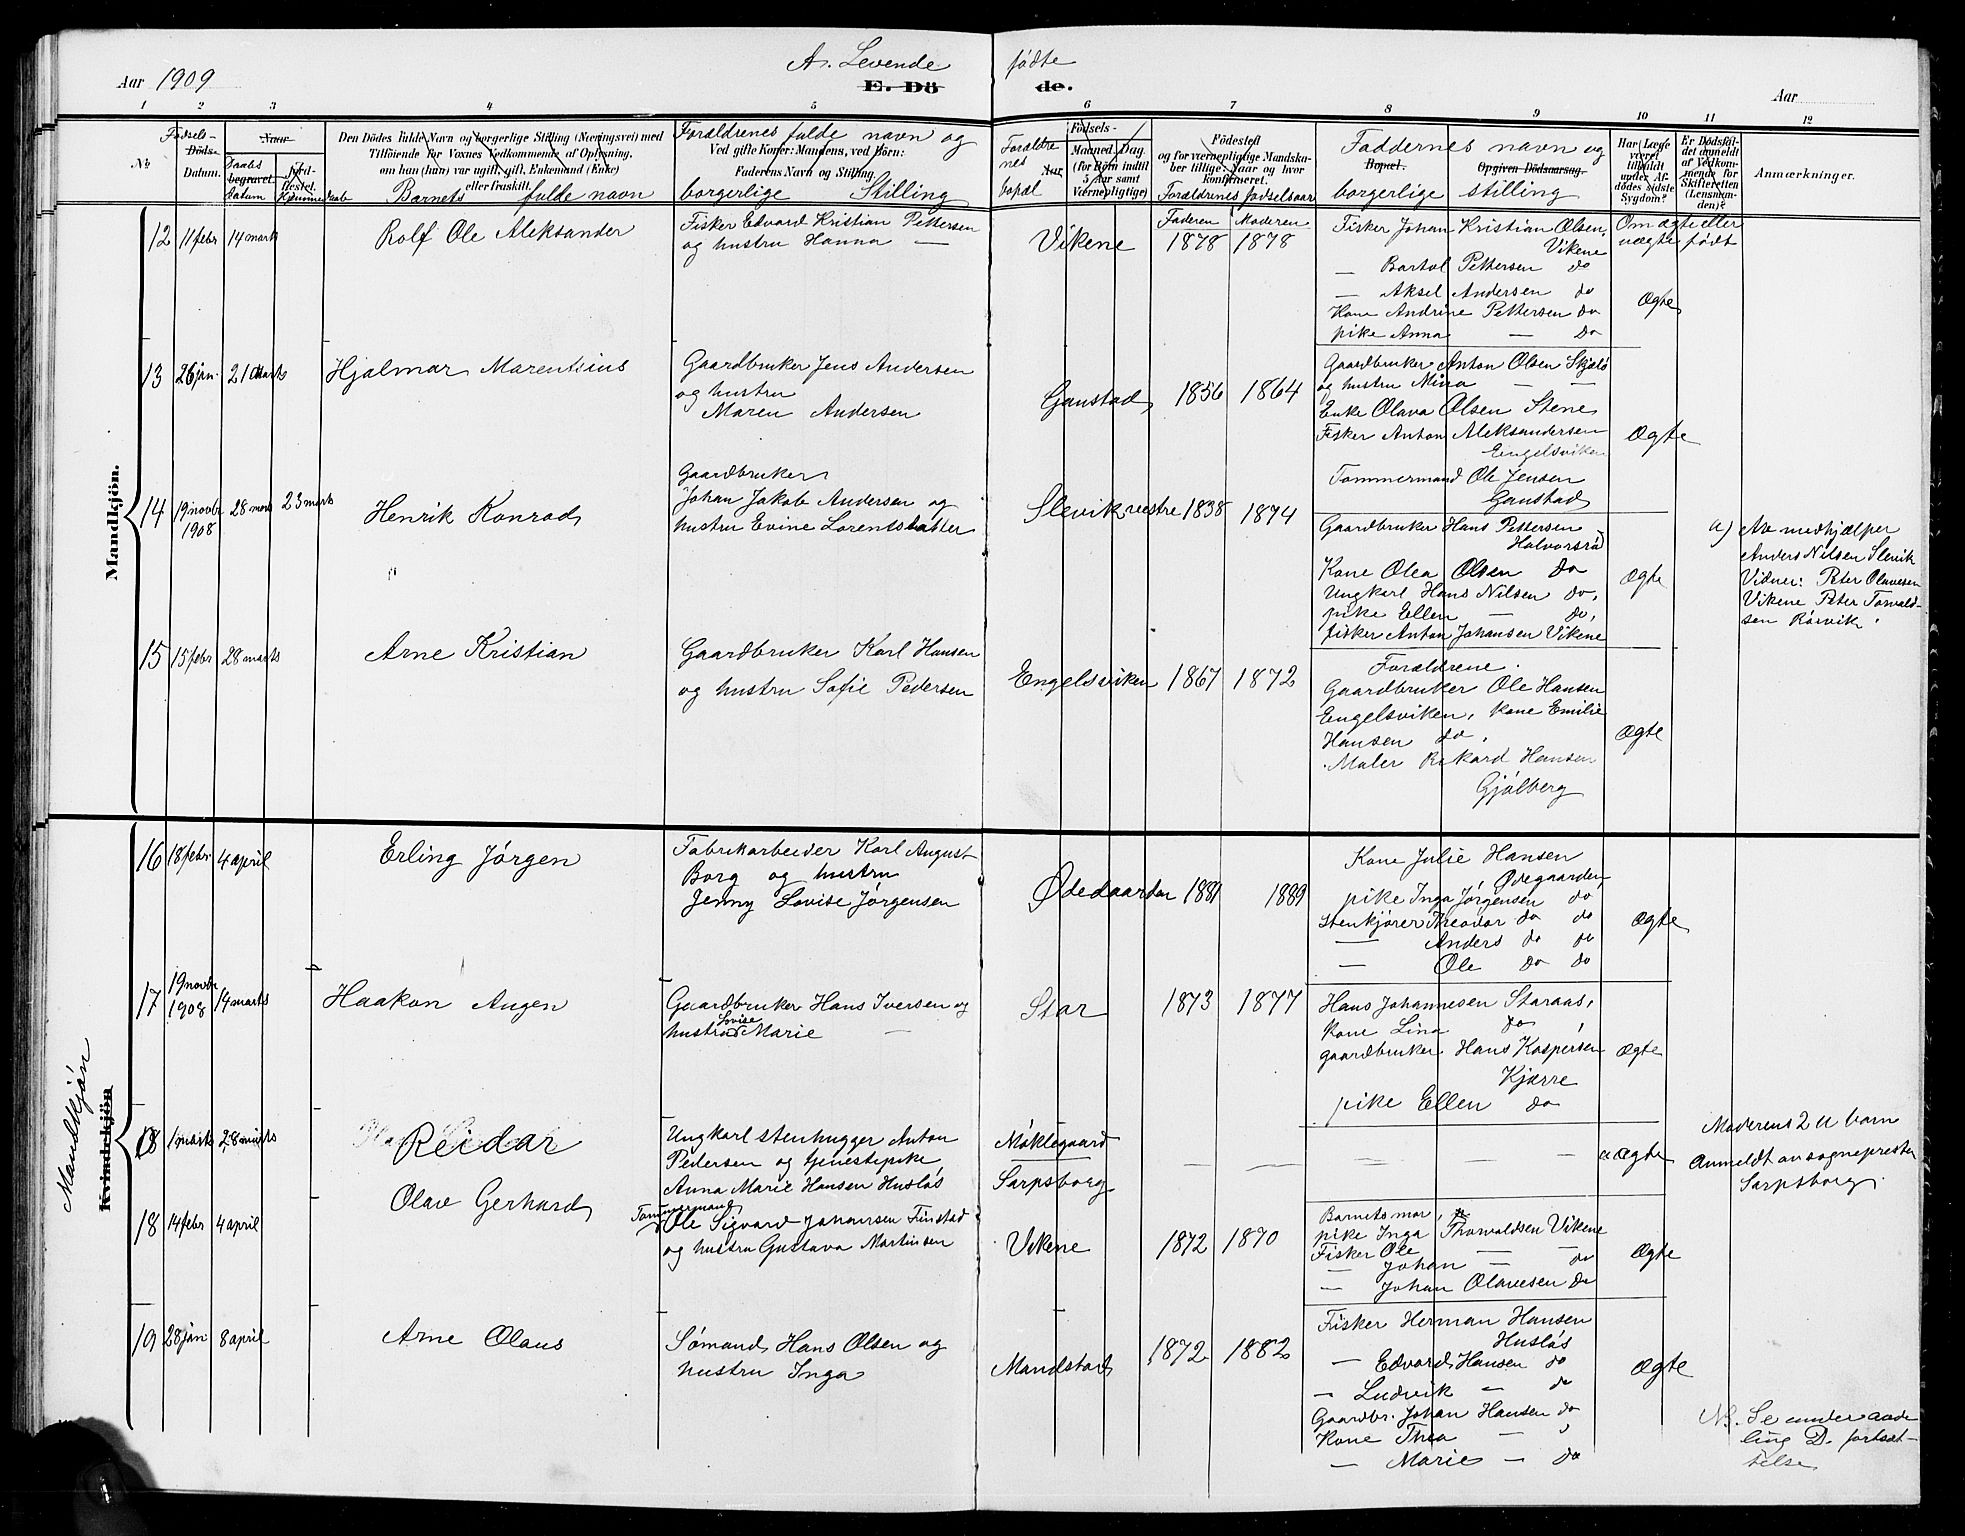 A. Levende fødte
Aar 1909
E. Dö de.
Aar
1 2 3 4 5 6 7 8 9 10 11 12
No.
Fødsels-
Döds-
Datum.
Naar
Daabs
begravet
datum
Jord-
fæstet.
Hjemmedaabs
Den Dödes fulde Navn og borgerlige Stilling (Næringsvei) med
Tilföiende for Voxnes Vedkommende af Oplysning,
om han (hun) var ugift, gift, Enkemand (Enke)
eller fraskilt.
Barnets fulde navn
Forældrenes fulde navn og
Ved gifte Koner: Mandens, ved Börn:
Faderens Navn og Stilling.
borgerlige Stilling
Forældre
nes
Aar
bopæl
Födsels-
Maaned. Dag.
(for Börn indtil
5 Aar samt
Værnepligtige)
Födested
og for værnepligtige Mandska-
ber tillige: Naar og hvor
konfirmeret.
Forældrenes fødselsaar
Faderen Moderen
Faddernes navn og
Bopæl. Opgiven Dödsaarsag.
borgerlige stilling
Har Læge
været
tilkaldt
under Af-
dödes sidste
Sygdom?
Er Dödsfal-
det anmeldt
af Vedkom-
mende for
Skifteretten
(Lensman-
den)?
Anmærkninger.
Om ægte eller
uægte født
Mandkjön.
12 11 febr 14 marts
Rolf Ole Aleksander
Fisker Edvard Kristian Pettersen
og hustru Hanna —
Vikene 1878 1878
Fisker Johan Kristian Olsen,
Vikene
— Bartol Pettersen do
— Aksel Andersen do
Kone Andrine Pettersen do
pike Anna — do
Ægte
13 26 jan. 21 marts
Hjalmar Marentius
Gaardbruker Jens Andersen
og hustru
Maren Andersen
Gaustad 1856 1864
Gaardbruker Anton Olsen Skjælø
og hustru Mina — —
Enke Olava Olsen Stene
Fisker Anton Aleksandersen
Engelsviken
Tømmermand Ole Jensen
Gaustad
Ægte
14 19 novbr 1908 28 mars 23 marts
Henrik Konrad
Gaardbruker
Johan Jakob Andersen og
hustru Evine Lorentsdatter
Slevik vestre 1838 1874
Gaardbruker Hans Pettersen
Halvorsrød
Kone Olea Olsen do
Ungkarl Hans Nilsen do,
pike Ellen — do,
fisker Anton Johansen Vikene
Ægte
a) Av medhjælper
Anders Nilsen Slevik
Vidner: Peter Olavesen
Vikene Peter Torvald-
sen Rørvik.
15 15 febr 28 marts
Arne Kristian
Gaardbruker Karl Hansen
og hustru Sofie Pedersen
Engelsviken 1867 1872
Forældrene.
Gaardbruker Ole Hansen
Engelsviken, kone Emilie
Hansen do.
Maler Rikard Hansen
Gjølberg
Ægte
Mandkjøn
Kvindekjön
16 18 febr. 4 april
Erling Jørgen
Fabrikarbeider Karl August
Borg og hustru
Jenny Lovise Jørgensen
Ødegaarden 1881 1889
Kone Julie Hansen
Ødegaarden,
pike Inga Jørgensen do
Stenkjører Theodor do do
— Anders do do
— Ole do do
Ægte
17 19 novbr 1908 14 marts
Haakon Augen
Gaardbruker Hans Iversen og
Lovise
hustru Marie —
Star 1873 1877
Hans Johannesen Staraas,
Kone Lina do
gaardbruker Hans Kaspersen
Kjærre
pike Ellen do
Ægte
1 marts 28 marts
Reidar
Ungkarl stenhugger Anton
Pedersen og tjenestepike
Anna Marie Hansen Husløs
Møklegaard
Sarpsborg
— — — — — —
uægte
Moderens 2 u barn
Anmeldt av sognepresten
Sarpsborg.
18 14 febr 4 april
Olav Gerhard
Tømmermand
Ole Sigvard Johansen Finstad
og hustru Gustava Martinsen
Vikene 1872 1870
Barnets mor,
pike Inga Thorvaldsen Vikene
Fisker Ole — —
— Johan — do
— Johan Olavesen do
Ægte
19 28 jan 8 april
Arne Olaus
Sømand Hans Olsen og
hustru Inga
Mandstad 1872 1882
Fisker Herman Hansen
Husløs
— Edvard Hansen do
— Ludvik — do
Gaardbr. Johan Hansen do
Kone Thea — ,
— Marie — do
Ægte
NB. Se under avde
ling D. fortsæt-
telse